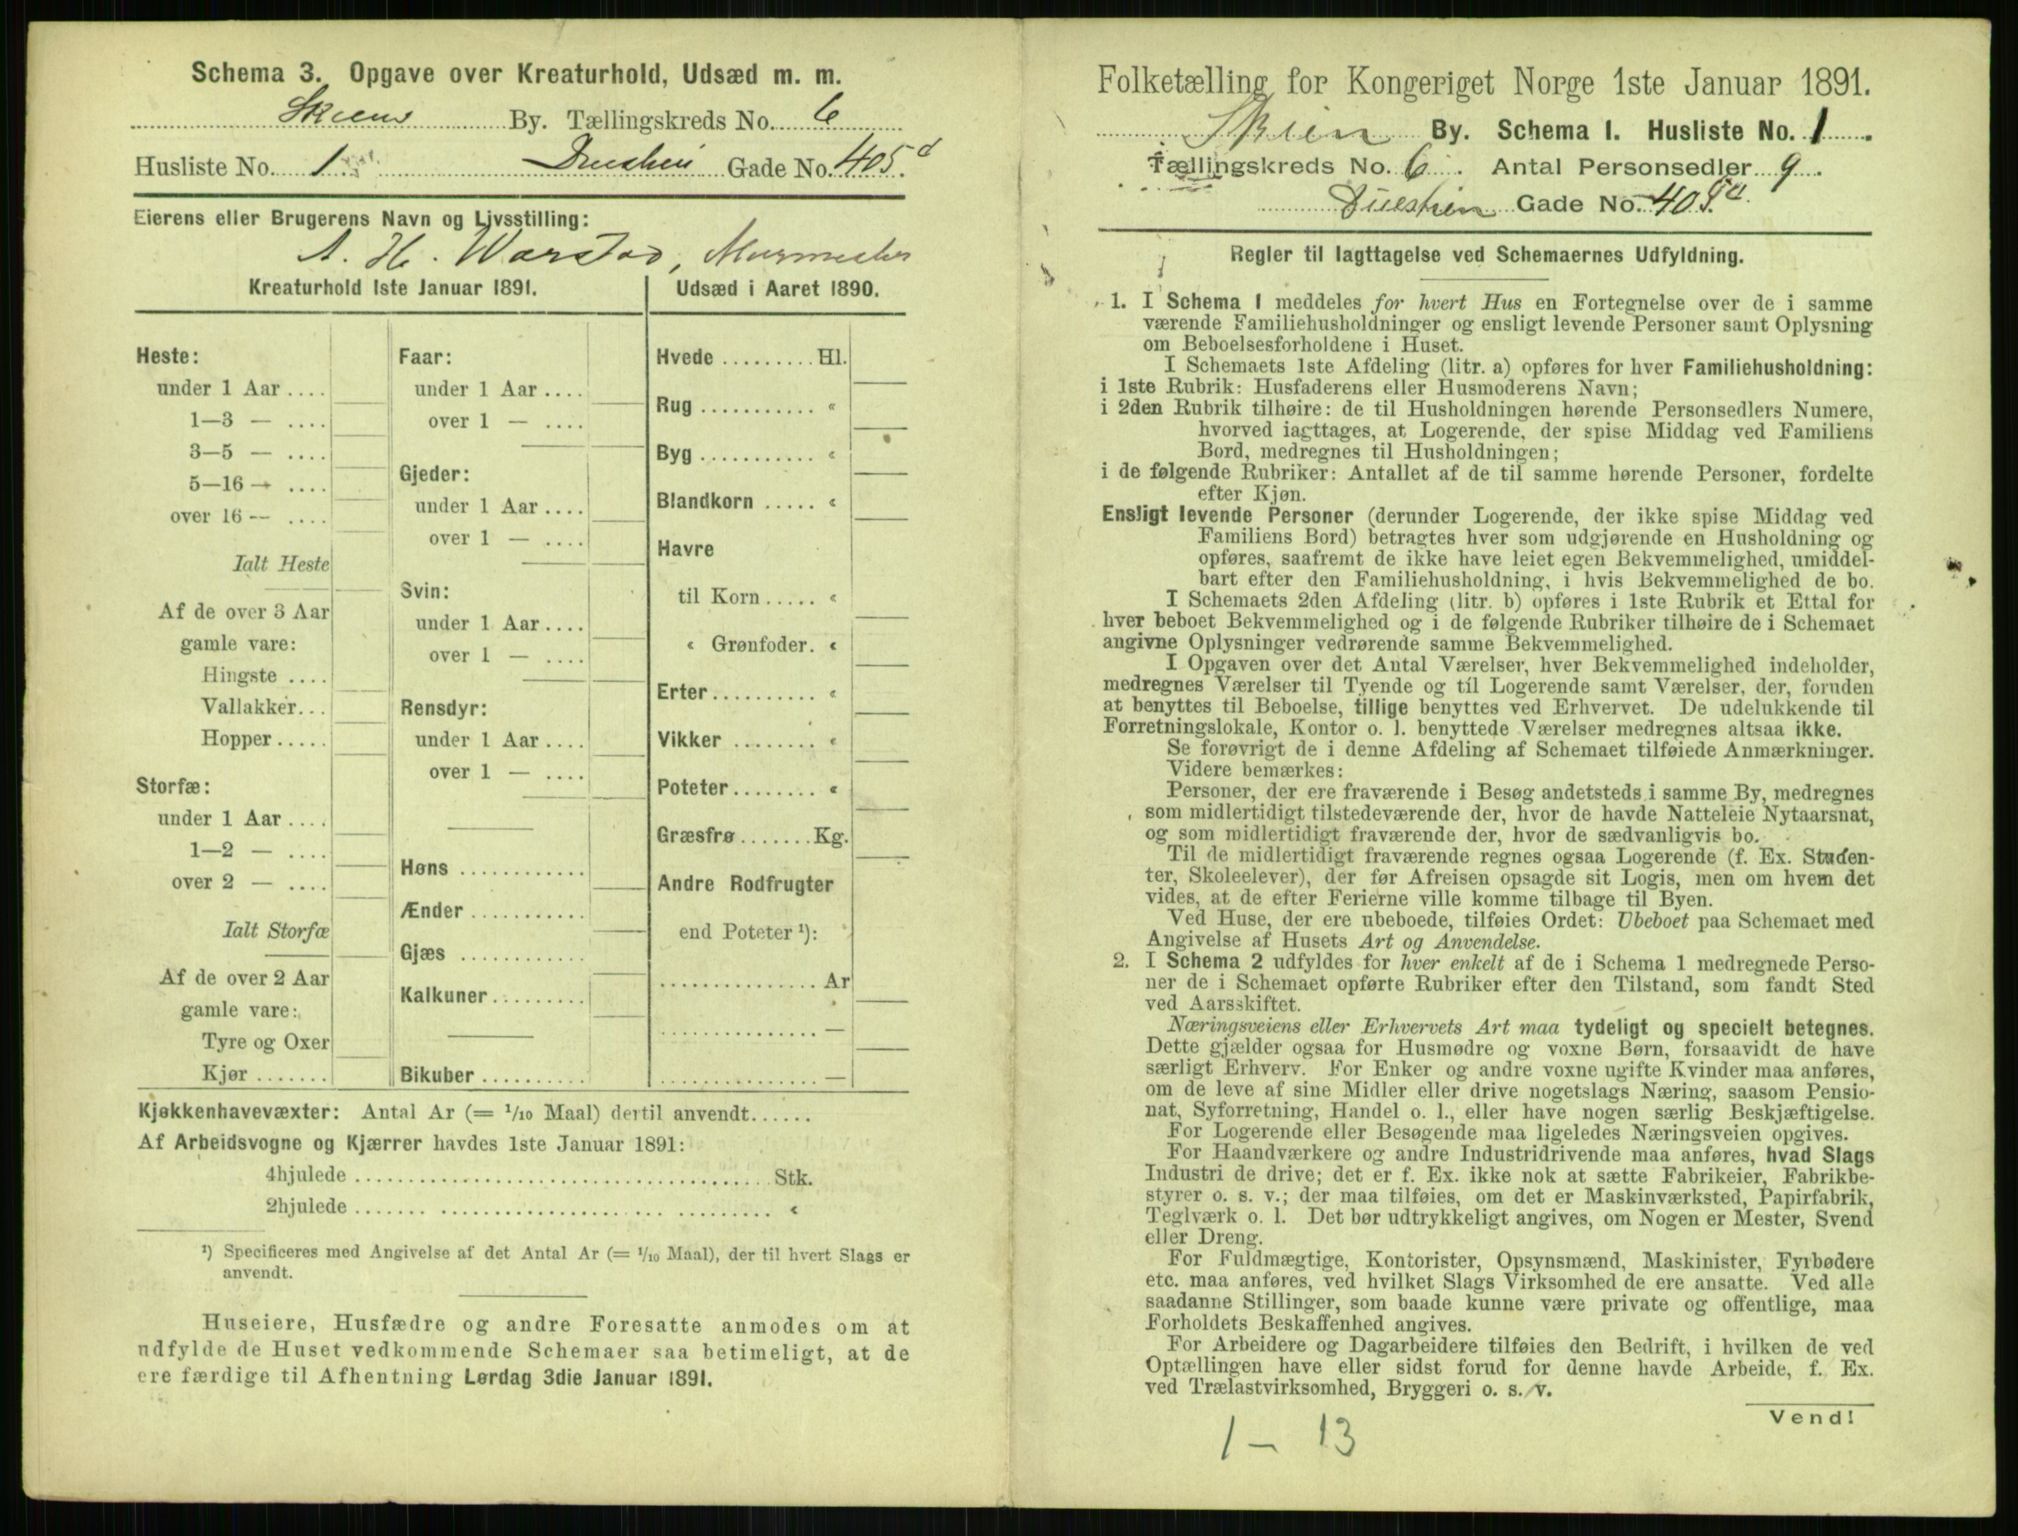 Schema 3. Opgave over Kreaturhold, Udsæd m. m.
Skiens By. Tællingskreds No. 6
Husliste No. 1 Duestien Gade No. 405 d
Eierens eller Brugerens Navn og Livsstilling:
A. H. Warstad, Murmester
Kreaturhold 1ste Januar 1891.
Heste:
under 1 Aar ....
1—3 — ....
3—5 — ....
5—16 — ....
over 16 — ....
Ialt Heste
Af de over 3 Aar
gamle vare:
Hingste ....
Vallakker...
Hopper.....
Storfæ:
under 1 Aar ....
1—2 — ....
over 2 — ....
Ialt Storfæ
Af de over 2 Aar
gamle vare:
Tyre og Oxer
Kjør .......
Faar:
under 1 Aar ....
over 1 — ....
Gjeder:
under 1 Aar ....
over 1 — ....
Svin:
under 1 Aar ....
over 1 — ....
Rensdyr:
under 1 Aar ....
over 1 — ....
Høns ............
Ænder ...........
Gjæs ............
Kalkuner.........
Bikuber ..........
Udsæd i Aaret 1890.
Hvede ......... Hl.
Rug ........... «
Byg ........... «
Blandkorn ..... «
Havre
til Korn ..... «
« Grønfoder. «
Erter.......... «
Vikker ........ «
Poteter........ «
Græsfrø ....... Kg.
Andre Rodfrugter
end Poteter ¹):
............... Ar
............... —
............... —
Kjøkkenhavevæxter: Antal Ar (= 1/10 Maal) dertil anvendt......
Af Arbeidsvogne og Kjærrer havdes 1ste Januar 1891:
4hjulede ........................................ Stk.
2hjulede ........................................ «
¹) Specificeres med Angivelse af det Antal Ar (= 1/10 Maal), der til hvert Slags er
anvendt.
Huseiere, Husfædre og andre Foresatte anmodes om at
udfylde de Huset vedkommende Schemaer saa betimeligt, at de
ere færdige til Afhentning Lørdag 3die Januar 1891.
Folketælling for Kongeriget Norge 1ste Januar 1891.
Skien By. Schema I. Husliste No. 1.
Tællingskreds No. 6. Antal Personsedler 9.
Duestien Gade No. 405 d.
Regler til Iagttagelse ved Schemaernes Udfyldning.
1. I Schema 1 meddeles for hvert Hus en Fortegnelse over de i samme
værende Familiehusholdninger og ensligt levende Personer samt Oplysning
om Beboelsesforholdene i Huset.
I Schemaets 1ste Afdeling (litr. a) opføres for hver Familiehusholdning:
i 1ste Rubrik: Husfaderens eller Husmoderens Navn;
i 2den Rubrik tilhøire: de til Husholdningen hørende Personsedlers Numere,
hvorved iagttages, at Logerende, der spise Middag ved Familiens
Bord, medregnes til Husholdningen;
i de følgende Rubriker: Antallet af de til samme hørende Personer, fordelte
efter Kjøn.
Ensligt levende Personer (derunder Logerende, der ikke spise Middag ved
Familiens Bord) betragtes hver som udgjørende en Husholdning og
opføres, saafremt de ikke have leiet egen Bekvemmelighed, umiddel-
bart efter den Familiehusholdning, i hvis Bekvemmelighed de bo.
I Schemaets 2den Afdeling (litr. b) opføres i 1ste Rubrik et Ettal for
hver beboet Bekvemmelighed og i de følgende Rubriker tilhøire de i Schemaet
angivne Oplysninger vedrørende samme Bekvemmelighed.
I Opgaven over det Antal Værelser, hver Bekvemmelighed indeholder,
medregnes Værelser til Tyende og til Logerende samt Værelser, der, foruden
at benyttes til Beboelse, tillige benyttes ved Erhvervet. De udelukkende til
Forretningslokale, Kontor o. l. benyttede Værelser medregnes altsaa ikke.
Se forøvrigt de i denne Afdeling af Schemaet tilføiede Anmærkninger.
Videre bemærkes:
Personer, der ere fraværende i Besøg andetsteds i samme By, medregnes
som midlertidigt tilstedeværende der, hvor de havde Natteleie Nytaarsnat,
og som midlertidigt fraværende der, hvor de sædvanligvis bo.
Til de midlertidigt fraværende regnes ogsaa Logerende (f. Ex. Studen-
ter, Skoleelever), der før Afreisen opsagde sit Logis, men om hvem det
vides, at de efter Ferierne ville komme tilbage til Byen.
Ved Huse, der ere ubeboede, tilføies Ordet: Ubeboet paa Schemaet med
Angivelse af Husets Art og Anvendelse.
2. I Schema 2 udfyldes for hver enkelt af de i Schema 1 medregnede Perso-
ner de i Schemaet opførte Rubriker efter den Tilstand, som fandt Sted
ved Aarsskiftet.
Næringsveiens eller Erhvervets Art maa tydeligt og specielt betegnes.
Dette gjælder ogsaa for Husmødre og voxne Børn, forsaavidt de have
særligt Erhverv. For Enker og andre voxne ugifte Kvinder maa anføres,
om de leve af sine Midler eller drive nogetslags Næring, saasom Pensio-
nat, Syforretning, Handel o. l., eller have nogen særlig Beskjæftigelse.
For Logerende eller Besøgende maa ligeledes Næringsveien opgives.
For Haandværkere og andre Industridrivende maa anføres, hvad Slags
Industri de drive; det er f. Ex. ikke nok at sætte Fabrikeier, Fabrikbe-
styrer o. s. v.; der maa tilføies, om det er Maskinværksted, Papirfabrik,
Teglværk o. l. Det bør udtrykkeligt angives, om Nogen er Mester, Svend
eller Dreng.
For Fuldmægtige, Kontorister, Opsynsmænd, Maskinister, Fyrbødere
etc. maa anføres, ved hvilket Slags Virksomhed de ere ansatte. Ved alle
saadanne Stillinger, som baade kunne være private og offentlige, maa
Forholdets Beskaffenhed angives.
For Arbeidere og Dagarbeidere tilføies den Bedrift, i hvilken de ved
Optællingen have eller sidst forud for denne havde Arbeide, f. Ex.
ved Trælastvirksomhed, Bryggeri o. s. v.
Vend!
1 — 13